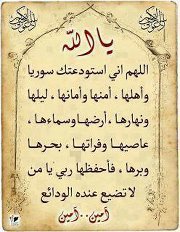 يا الله
اللهم اني استودعتك سوريا
وأهلها ، أمنها وأمانها ، ليلها
ونهارها ، أرضها وسماءها ،
عاصيها وفراتها ، بحرها
وبرها ، فأحفظها ربي يا من
لا تضيع عنده الودائع
أمين..أمين